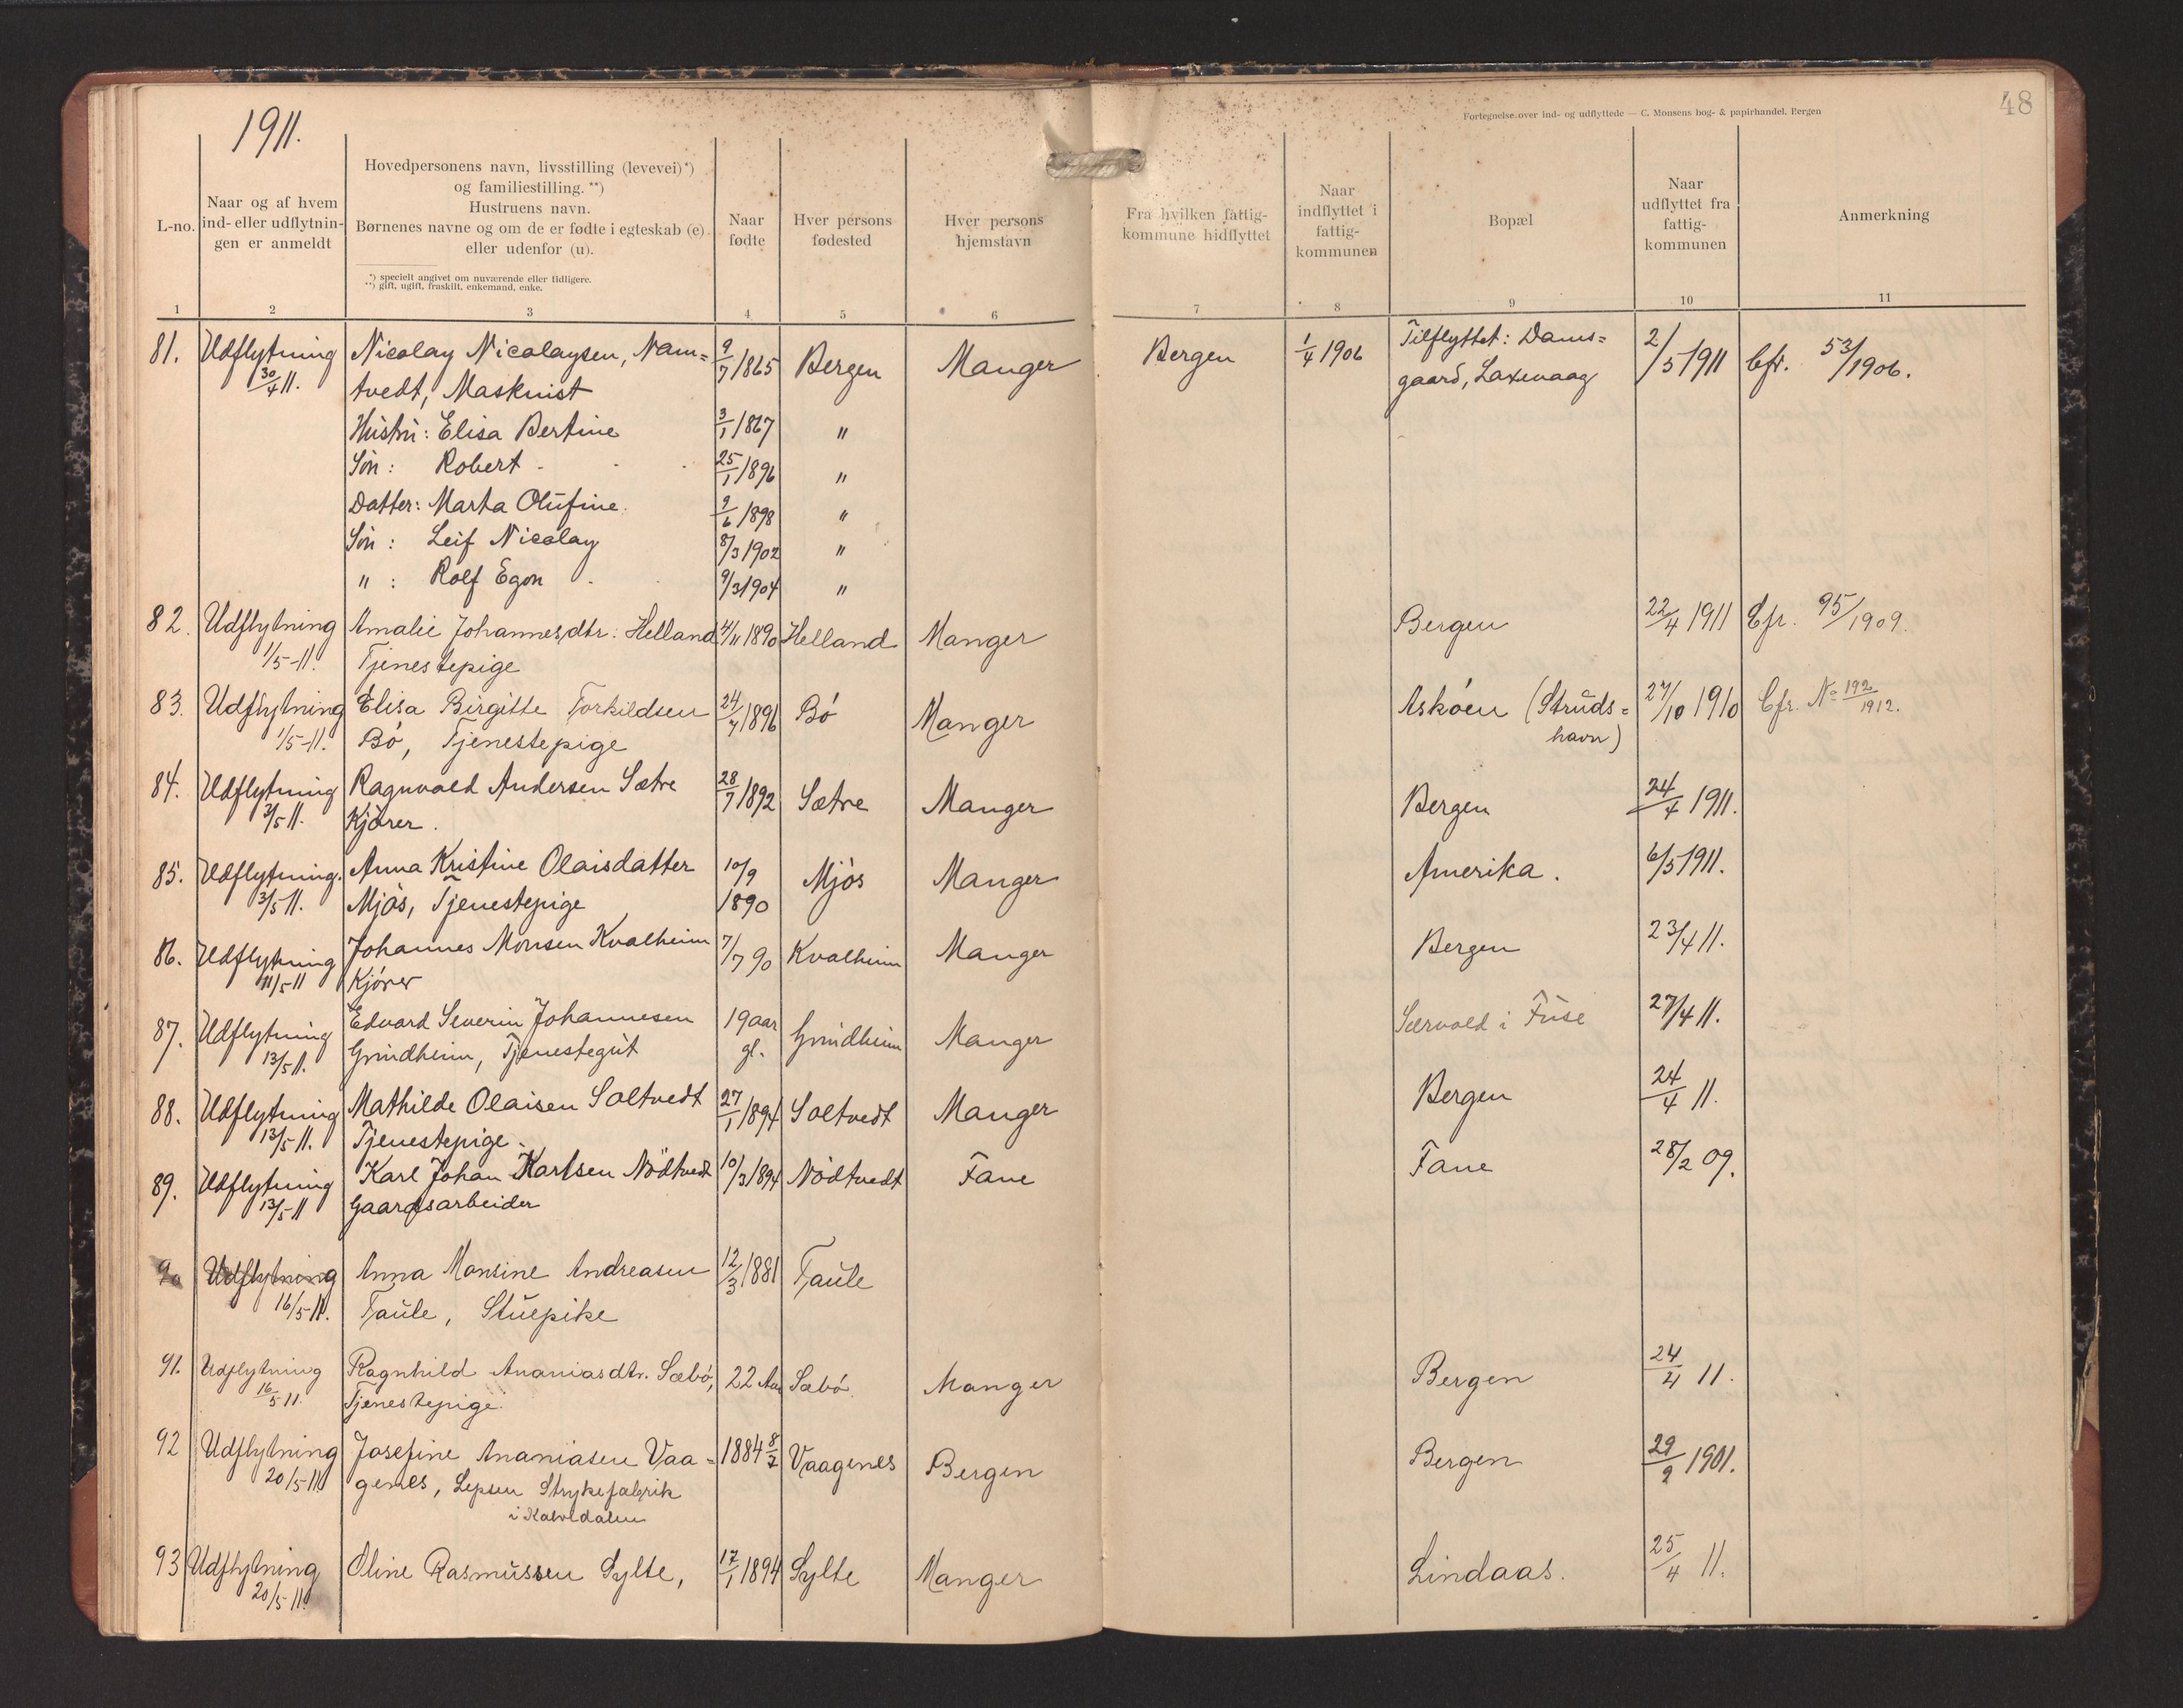 1911.
Fortegnelse over ind- og udflyttede — C. Monsens bog- & papirhandel, Bergen
48
L-no.
Naar og af hvem
ind- eller udflytnin-
gen er anmeldt
Hovedpersonens navn, livsstilling (levevei)*)
og familiestilling. **)
Hustruens navn.
Børnenes navne og om de er fødte i egteskab (e)
eller udenfor (u).
*) specielt angivet om nuværende eller tidligere.
**) gift, ugift, fraskilt, enkemand, enke.
Naar
fødte
Hver persons
fødested
Hver persons
hjemstavn
Fra hvilken fattig-
kommune hidflyttet
Naar
indflyttet i
fattig-
kommunen
Bopæl
Naar
udflyttet fra
fattig-
kommunen
Anmerkning
1 2 3 4 5 6 7 8 9 10 11
81. Udflytning Nicolay Nicolaysen, Nam= 9/7 1865 Bergen Manger Bergen 1/4 1906 Tilflyttet: Dams= 2/5 1911 Cfr. 53/1906.
30/4 11. tvedt, Maskinist gaard, Laxevaag
Hustru: Elisa Bertine 3/1 1867 "
Søn: Robert 25/1 1896 "
Datter: Marta Olufine 9/6 1898 "
Søn: Leif Nicolay 8/3 1902 "
" : Rolf Egon 9/3 1904 "
82. Udflytning Amalie Johannesdtr. Helland 4/11 1890 Helland Manger Bergen 22/4 1911 Cfr. 95/1909.
1/5-11. Tjenestepige
83. Udflytning Elisa Birgitte Torkildsen 24/7 1896 Bö Manger Asköen (Struds= 27/10 1910 Cfr. No 192/1912.
1/5-11. Bö, Tjenestepige havn)
84. Udflytning Ragnvald Andersen Sætre 28/7 1892 Sætre Manger Bergen 24/4 1911.
3/5 11. Kjörer.
85. Udflytning. Anna Kristine Olaisdatter 10/9 Mjös Manger Amerika. 6/5 1911.
3/5 11. Mjös, Tjenestepige 1890
86. Udflytning Johannes Monsen Kvalheim 7/7 90 Kvalheim Manger Bergen 23/4 11.
11/5 11 Kjörer
87. Udflytning Edvard Severin Johannesen 19 aar Grindheim Manger Særvold i Fuse 27/4 11.
13/5 11. Grindheim, Tjenestegut gl.
88. Udflytning Mathilde Olaisen Soltvedt 27/1 1894 Soltvedt Manger Bergen 24/4 11.
13/5 11. Tjenestepige.
89. Udflytning Karl Johan Karlsen Nödtvedt 10/3 1894 Nödtvedt Fane Fane 28/2 09.
13/5 11 Gaardsarbeider
90 Udflytning Anna Monsine Andreasen 12/3 1881 Taule
16/5-11. Taule, Stuepike
91. Udflytning Ragnhild Ananiasdtr. Sæbö, 22 Aar Sæbö. Manger Bergen 24/4 11.
16/5 11. Tjenestepige.
92 Udflytning Josefine Ananiasen Vaa= 1884 8/7 Vaagenes Bergen Bergen 29/9 1901.
20/5-11 genes, Lepsen Strykefabrik
i Kalvedalen
93 Udflytning Oline Rasmussen Sylte, 17/1 1894 Sylte Manger Lindaas. 25/4 11.
20/5-11.